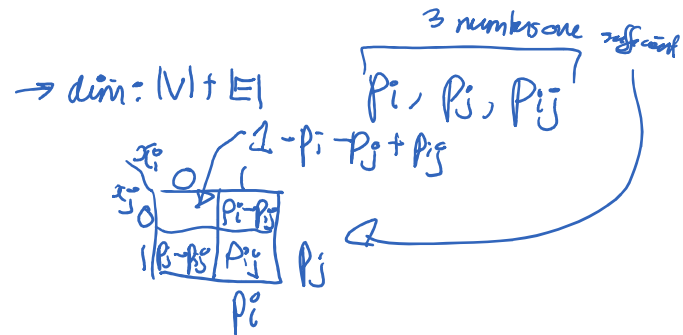 3 numbers are sufficient
→ dim: |V| + |E|
p_i, p_j, p_ij
1 - p_i - p_j + p_ij
x_i
0 1
x_j
0 p_i - p_ij
1 p_j - p_ij p_ij p_j
p_i